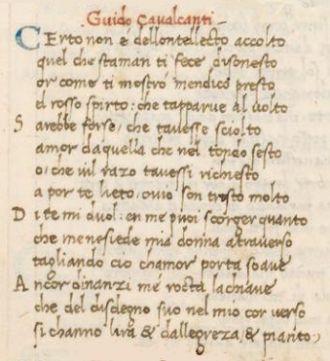 Guido Cavalcanti -
CErto non é dellontellecto accolto
quel che staman ti fece disonesto
or come ti mostrò mendico presto
el rosso spirto: che tapparue al volto
Sarebbe forse, che tauesse sciolto
amor daquella che nel tondo sesto
o, che uil razo tauessi richiesto
a por te lieto, ouio son tristo molto
Di te mi duol: en me puoi scorger quanto
che me nefiede mia donna atrauerso
tagliando cio chamor porta soaue
Ancor dinanzi me rotta lachiaue
che del disdegno suo nel mio cor uerso
si channo lira & dallegreza, & pianto,